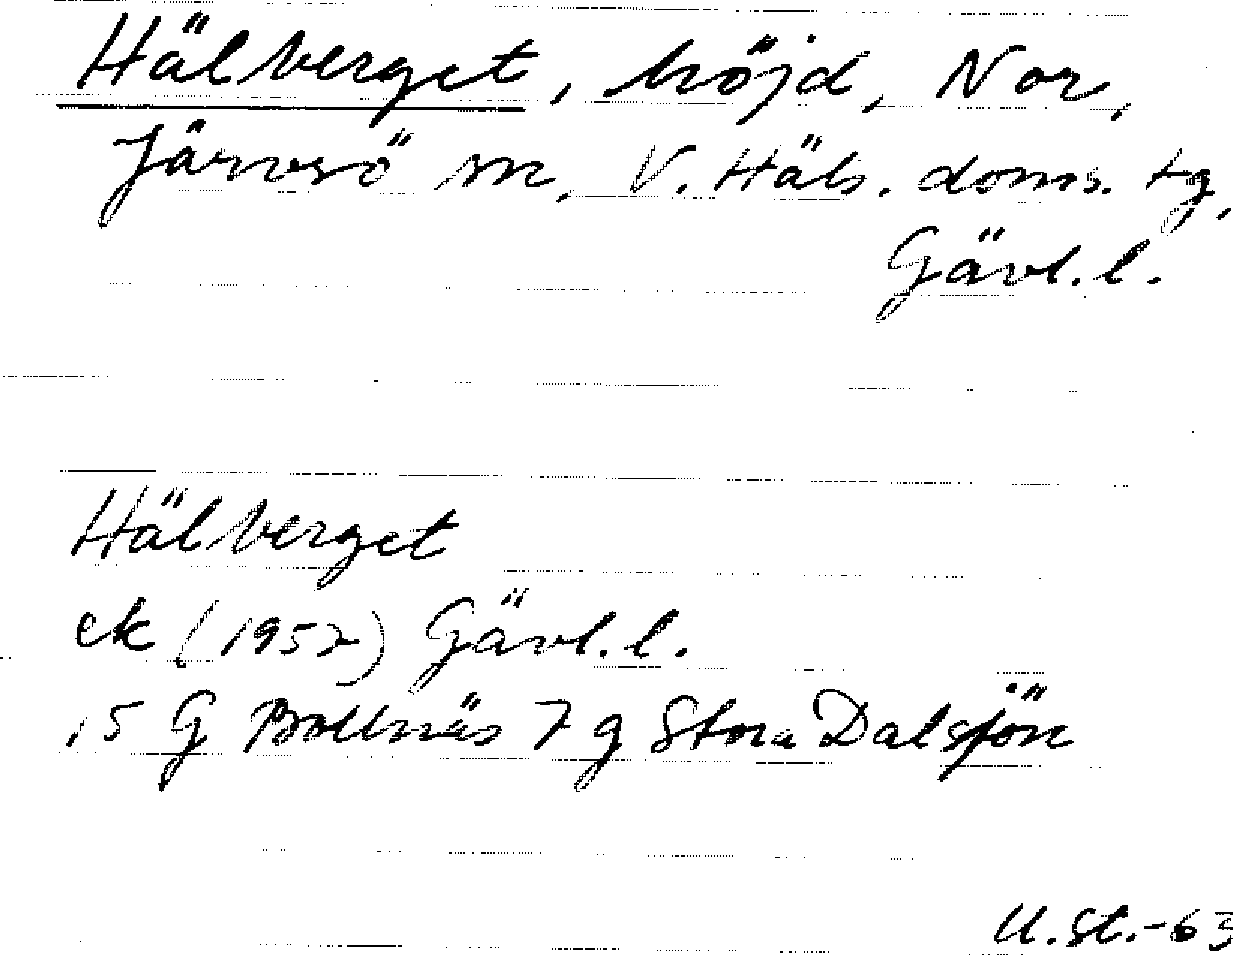 Hälberget, höjd, Nor,
Järvsö sn, V. Häls. doms. tg,
Gävl. l.
Hälberget
ek (1957) Gävl. l.
15 G Bollnäs 7 g Stora Dalsjön
U. St. -63